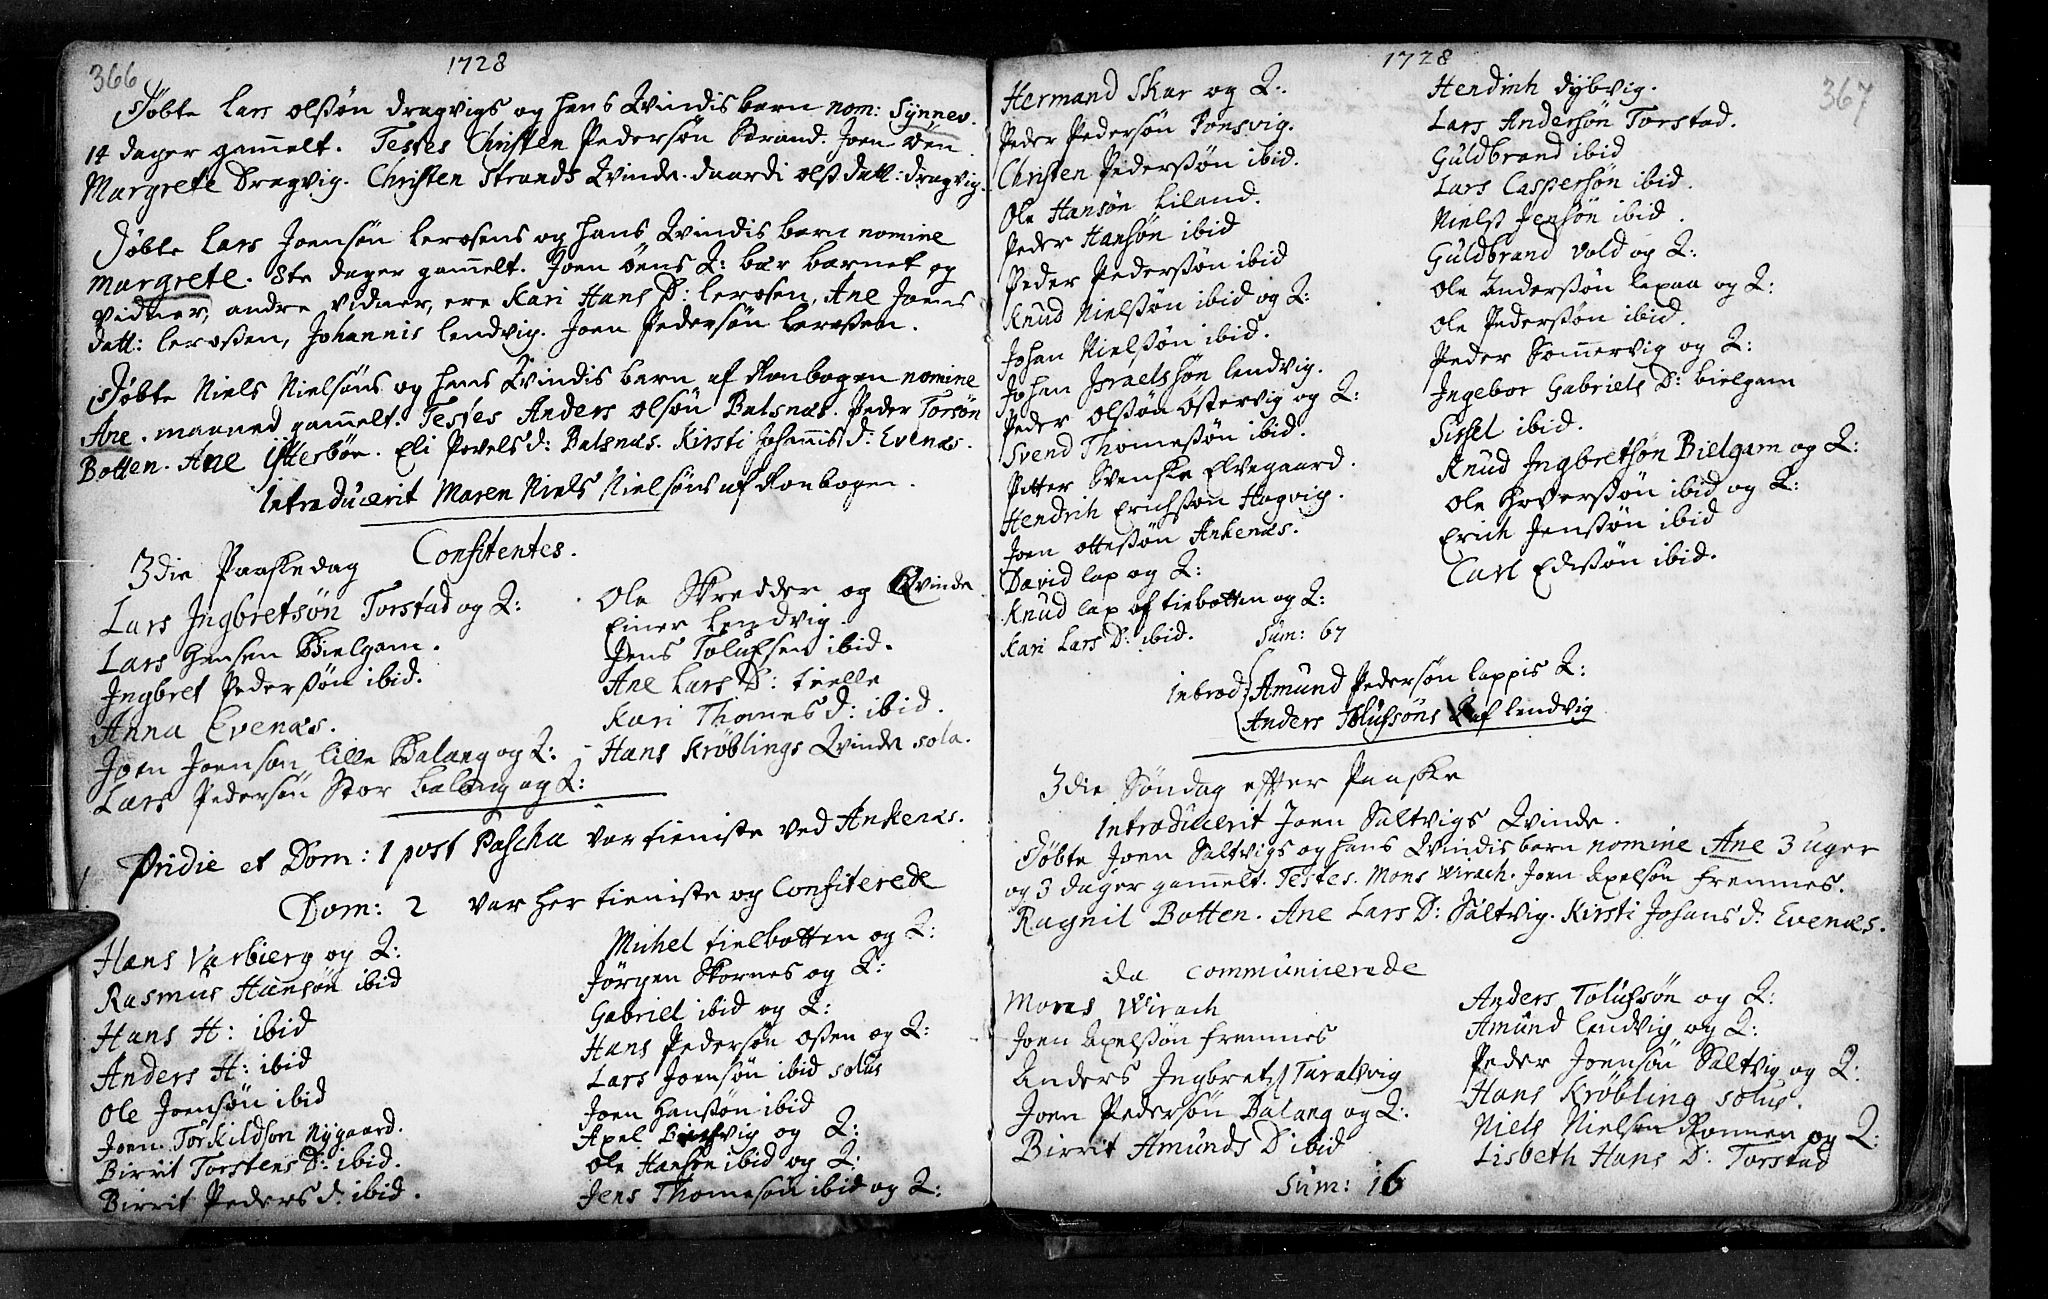 366
1728
Døbte Lars olssøn dragvigs og hans Qvindis barn nom: Synnev.
14 dager gammelt. Testes Christen Pedersøn Strand. Joen Øen
Margrete Dragvig. Christen Strands Qvinde. daardi olss datt: dragvig.
Døbte Lars Joensøn Lerosens og hans Qvindis barn nomine
Margrete. 8te dager gammelt. Joen öens Q: bær barnet og
vidner, andre vidner, ere Kari Hans D: lerosen, Ane Joens
datt: lerossen, Johannis lendvig. Joen Pedersøn Lerossen.
Døbte Niels Nielsöns og hans Qvindis barn af Ronbogen nomine
Ane. maaned gammelt. Testes Anders olsøn Balsnæs. Peder Torsøn
Botten. Ane ytterbön. Eli Povels d: Balsnæs. Kirsti Johannis d: Evenæs.
Introducerit Maren Niels Nielsöns af Ronbogen.
3die Paaskedag Confitentes.
Lars Ingbretsøn Torstad og Q:
Lars Hensen Bielgam.
Ingbret Pederssøn ibid.
Anna Evenæs.
Joen Joenson lille Balang og Q:
Lars Pedersøn Stor balang og Q:
Ole Skredder og Qvinde
Einer Lendvig.
Jens Tolufsen ibid.
Ane Lars D: tielle
Kari Thomes d: ibid.
Hans Kröblings Qvinde sola.
Pridie et Dom: 1 post Pascha var tieniste ved Ankenæs.
Dom: 2 var her tieniste og Confiterede
Hans Varbierg og Q:
Rasmus Hansøn ibid
Hans H: ibid
Anders H: ibid
Ole Joensøn ibid
Joen Torkildson Nygaard.
Birrit Torstens D: ibid.
Birrit Peders d: ibid.
Michel tielbotten og Q:
Jörgen Skornes og Q:
Gabriel ibid og Q:
Hans Pedersøn Ossen og Q:
Lars Joensøn ibid solus
Joen Hanssøn ibid
Axel vig og Q:
Ole Hansøn ibid og Q:
Jens Thomesøn ibid og Q:
1728
367
Hermand Skar og Q:
Peder Pedersøn Ponsvig.
Christen Pederssøn ibid.
Ole Hansøn Liland.
Peder Hansøn ibid
Peder Pederssøn ibid
Knud Nielssøn ibid og Q:
Johan Nielssøn ibid.
Johan Israelssøn lendvig.
Peder Olssøn Ostervig og Q:
Svend Thomessøn ibid.
Pitter Svenske Elvegaard.
Hendrih Erichsson Hagvig.
Joen ottessøn Ankenæs.
David lap og Q:
Knud lap af tiebotten og Q:
Kari Lars D: ibid. Sum: 67
Hendrich dybvig.
Lars Andersøn Torstad.
Guldbrand ibid
Lars Caspersøn ibid.
Nielss Jensøn ibid.
Guldbrand Vold og Q:
Ole Anderssøn lepaa og Q:
Ole Pederssøn ibid.
Peder Sommervig og Q:
Ingebor Gabriels D: bielgam
Sissel ibid.
Knud Ingbretsøn Bielgam og Q:
Ole Hoverssøn ibid og Q:
Erich Jenssøn ibid
Carl Edissøn ibid.
introd: Amund Pedersøn lappis Q:
Anders Tolufsøns Q af lendvig
3die Söndag effter Paaske
Introducerit Joen Saltvigs Qvinde.
Döbte Joen Saltvigs og hans Qvindis barn nomine Ane 3 uger
og 3 dager gammelt. Testes. Mons Wirach. Joen Axelsøn Fremnes.
Ragnil Botten. Ane Lars D: Saltvig. Kirsti Johans d: Evenæs.
da communicerede
Mons Wirach
Joen Axelssøn fremnes
Anders Ingbretss Taralsvig
Joen Pedersøn Balang og Q:
Birrit Amunds D ibid
Anders Tolufsøn og Q:
Amund lendvig og Q:
Peder Joensøn Saltvig og Q:
Hans Kröbling solus.
Niels Nielsen Ronnen og Q:
Lisbeth Hans D: Torstad
Sum: 16